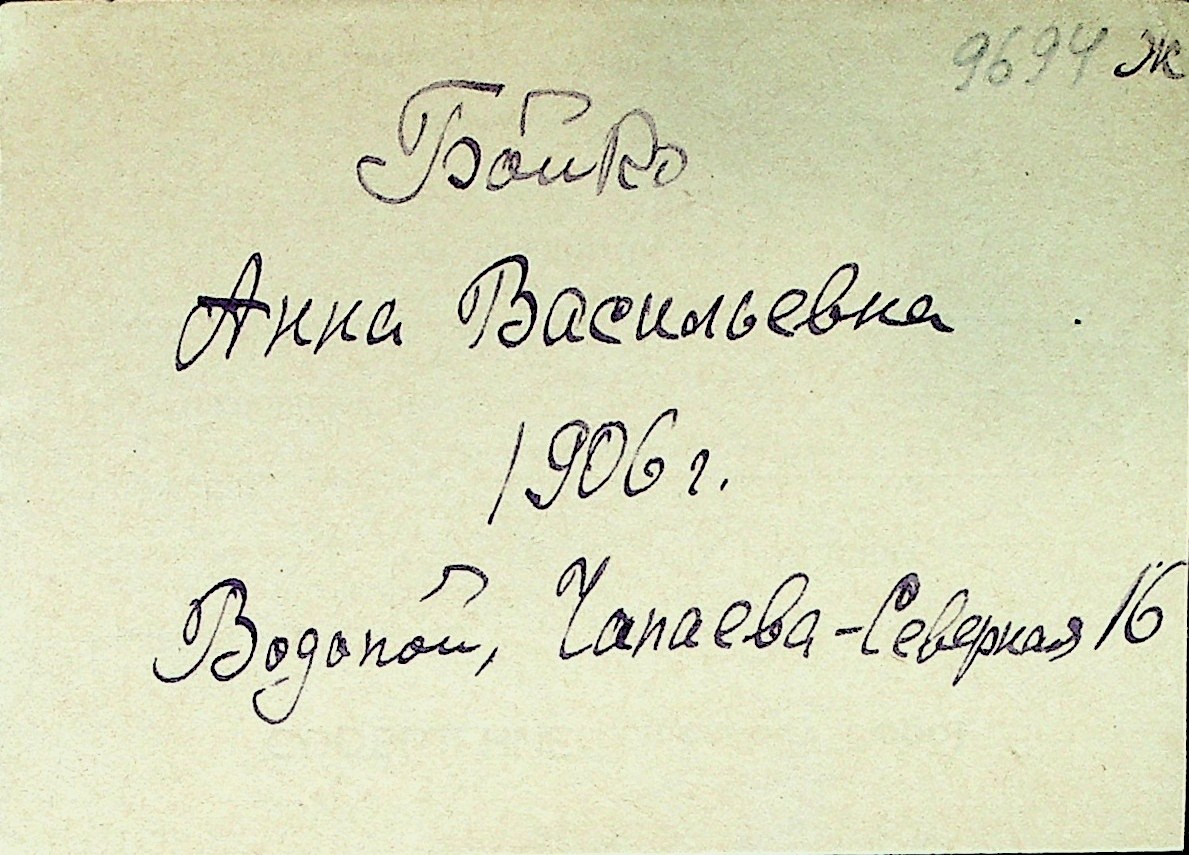 9694 ж
Бойко
Анна Васильевна
1906 г.
Водопой, Чапаева-Северная 16